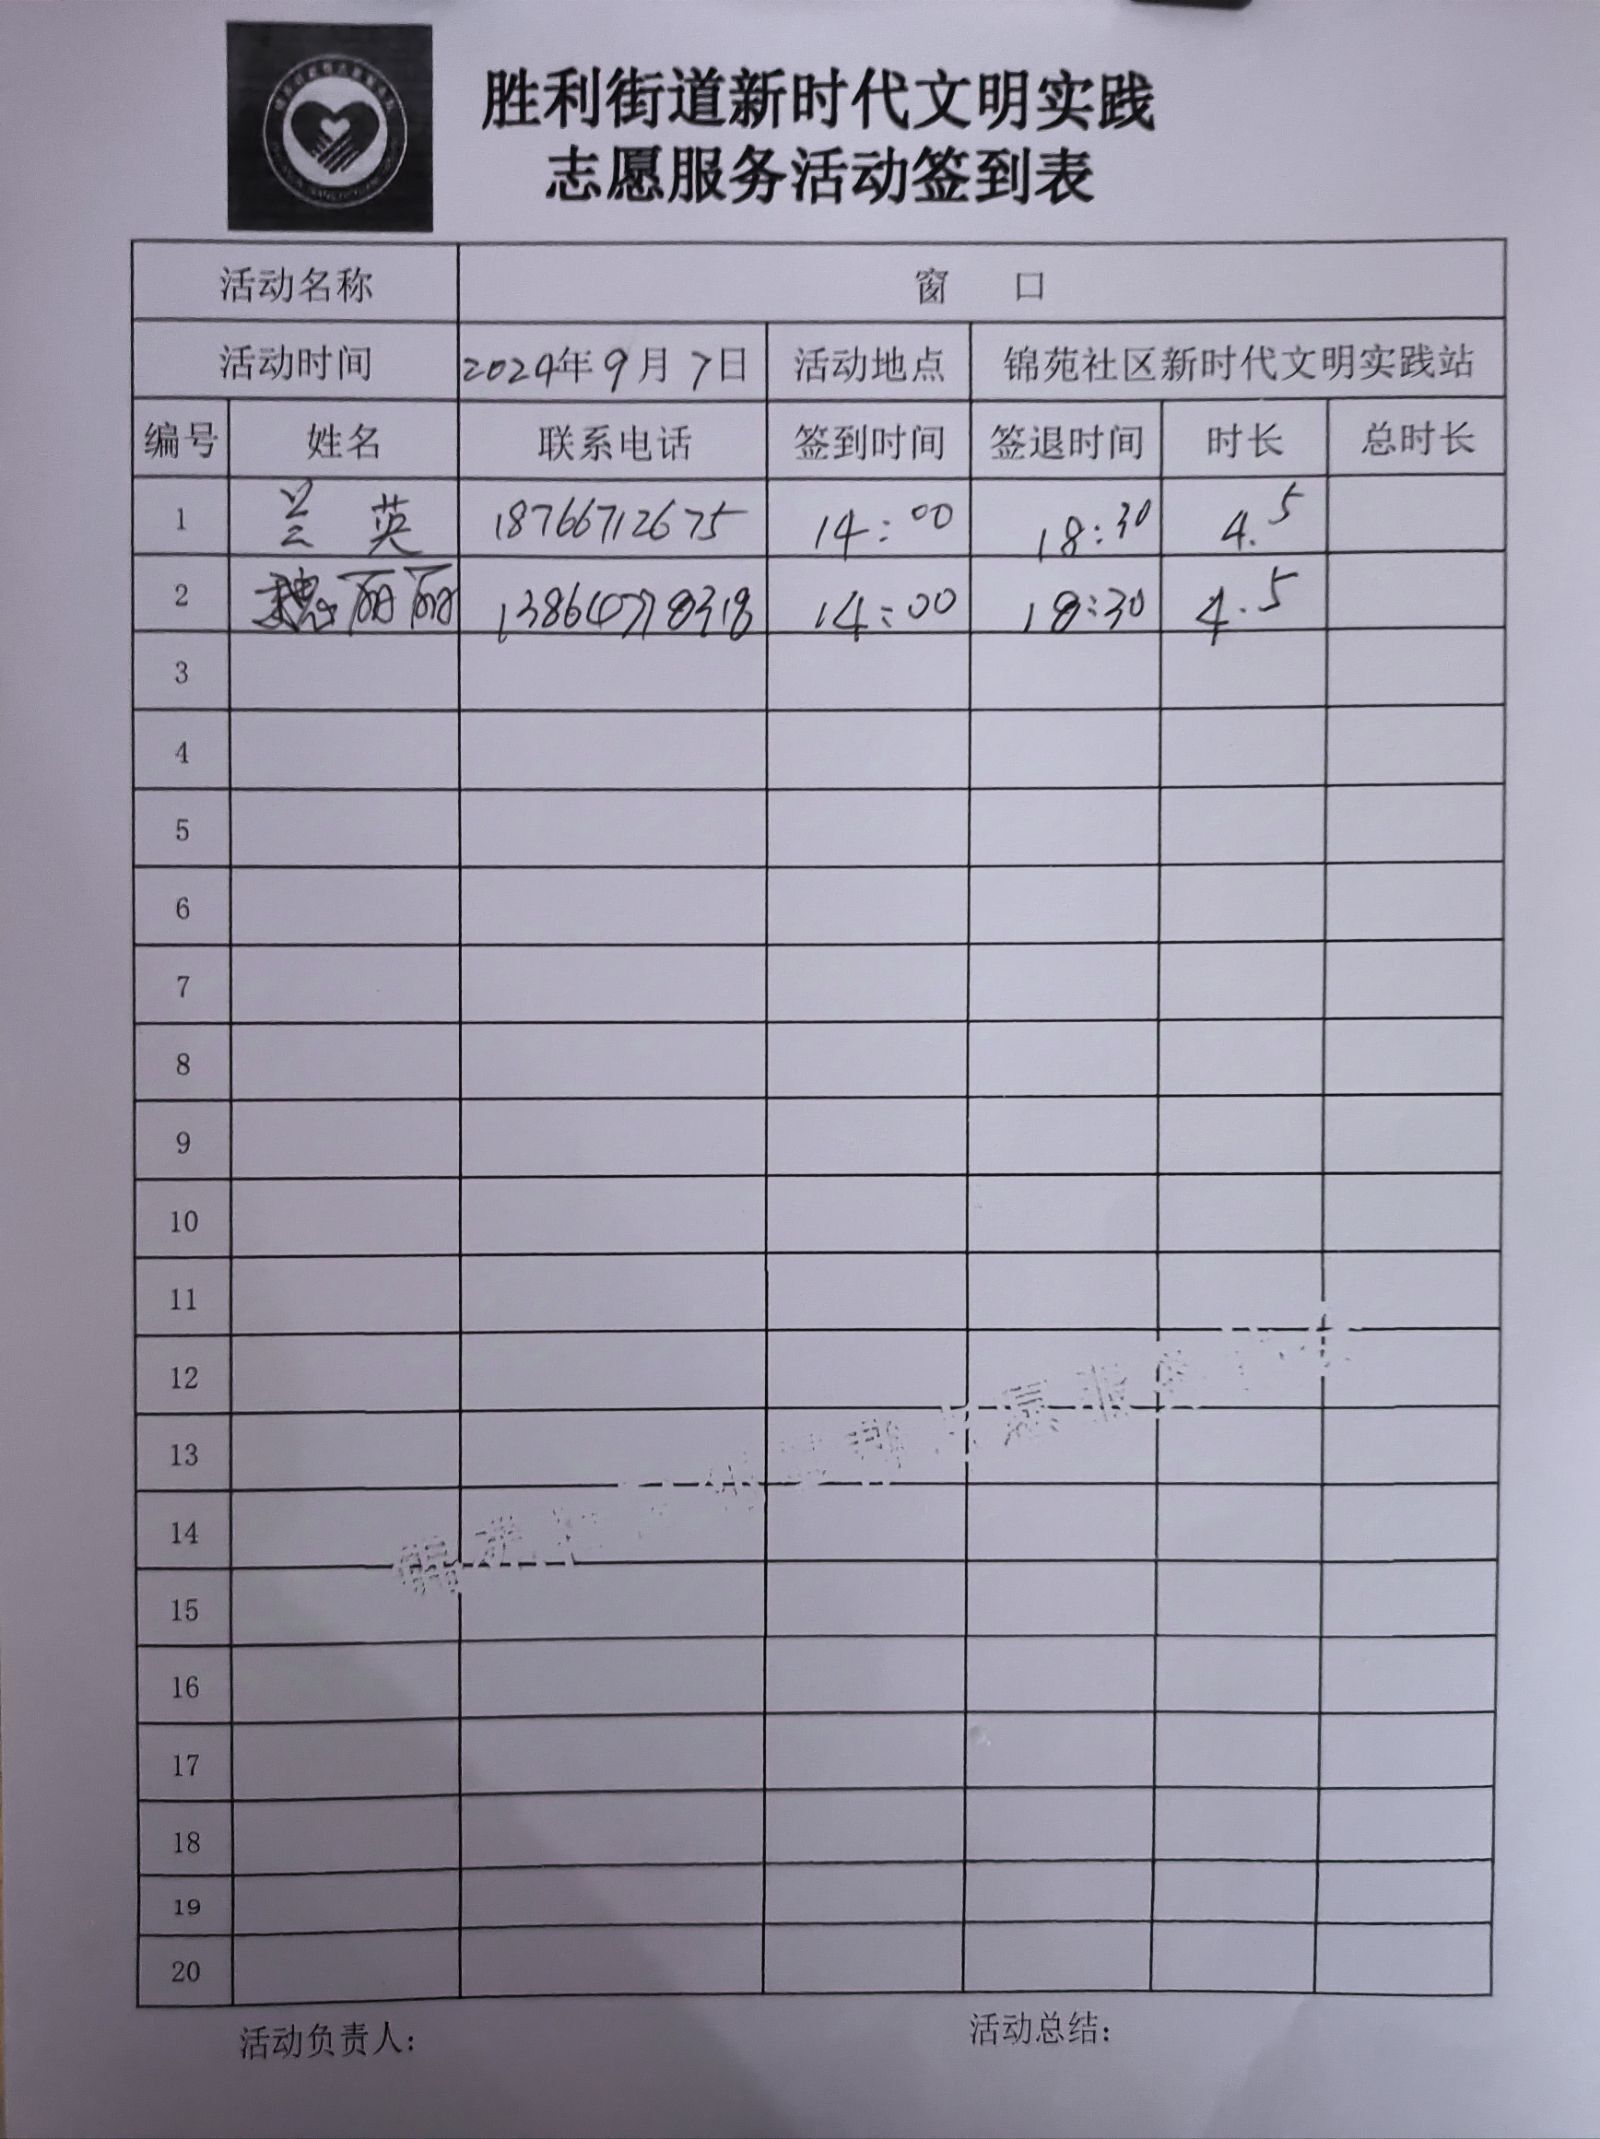 胜利街道新时代文明实践
志愿服务活动签到表
活动名称 窗 口
活动时间 2024年9月7日 活动地点 锦苑社区新时代文明实践站
编号 姓名 联系电话 签到时间 签退时间 时长 总时长
1 兰英 18766712675 14:00 18:30 4.5
2 魏丽丽 13864078318 14:00 18:30 4.5
3
4
5
6
7
8
9
10
11
12
13
14
15
16
17
18
19
20
活动负责人: 活动总结: